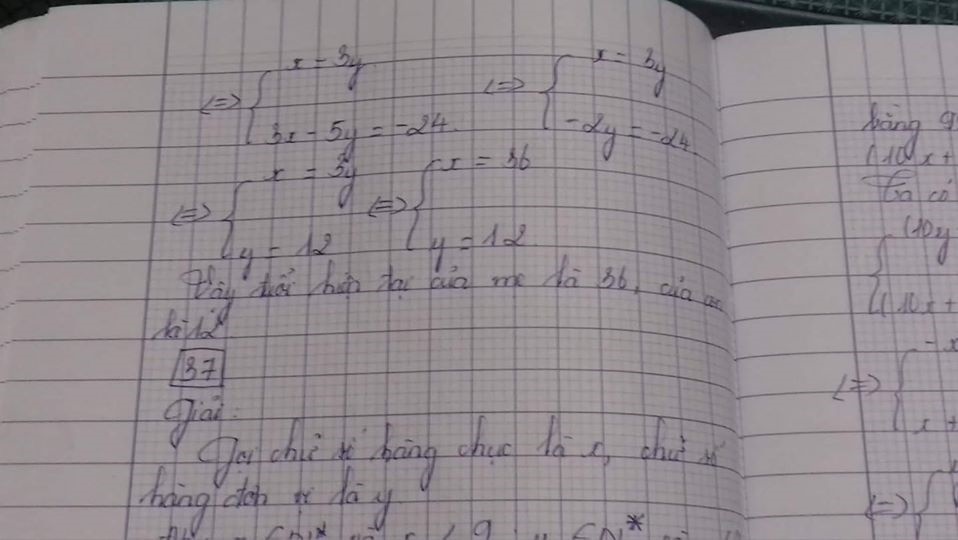 x = 3y
<=> {
3x - 5y = -24
x = 3y
<=> {
-2y = -24
x = 3y
<=> {
y = 12
x = 36
<=> {
y = 12
Vậy tuổi hiện tại của mẹ là 36, của
là 12
37
Giải:
Gọi chữ số hàng chục là x, chữ số
hàng đơn vị là y
bằng 9
(10x +
Ta có
{ (10y
(10x +
<=> { -x
x +
<=> {